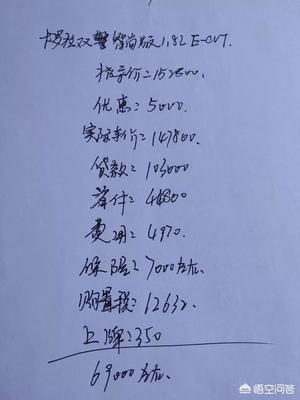 卡罗拉双擎智尚版1.8L E-CVT.
指导价=152800.
优惠=5000.
实际车价=147800.
贷款=103000
首付=44800
费用=4970.
保险=7000左右.
购置税=12632.
上牌=350
69000左右.
悟空问答